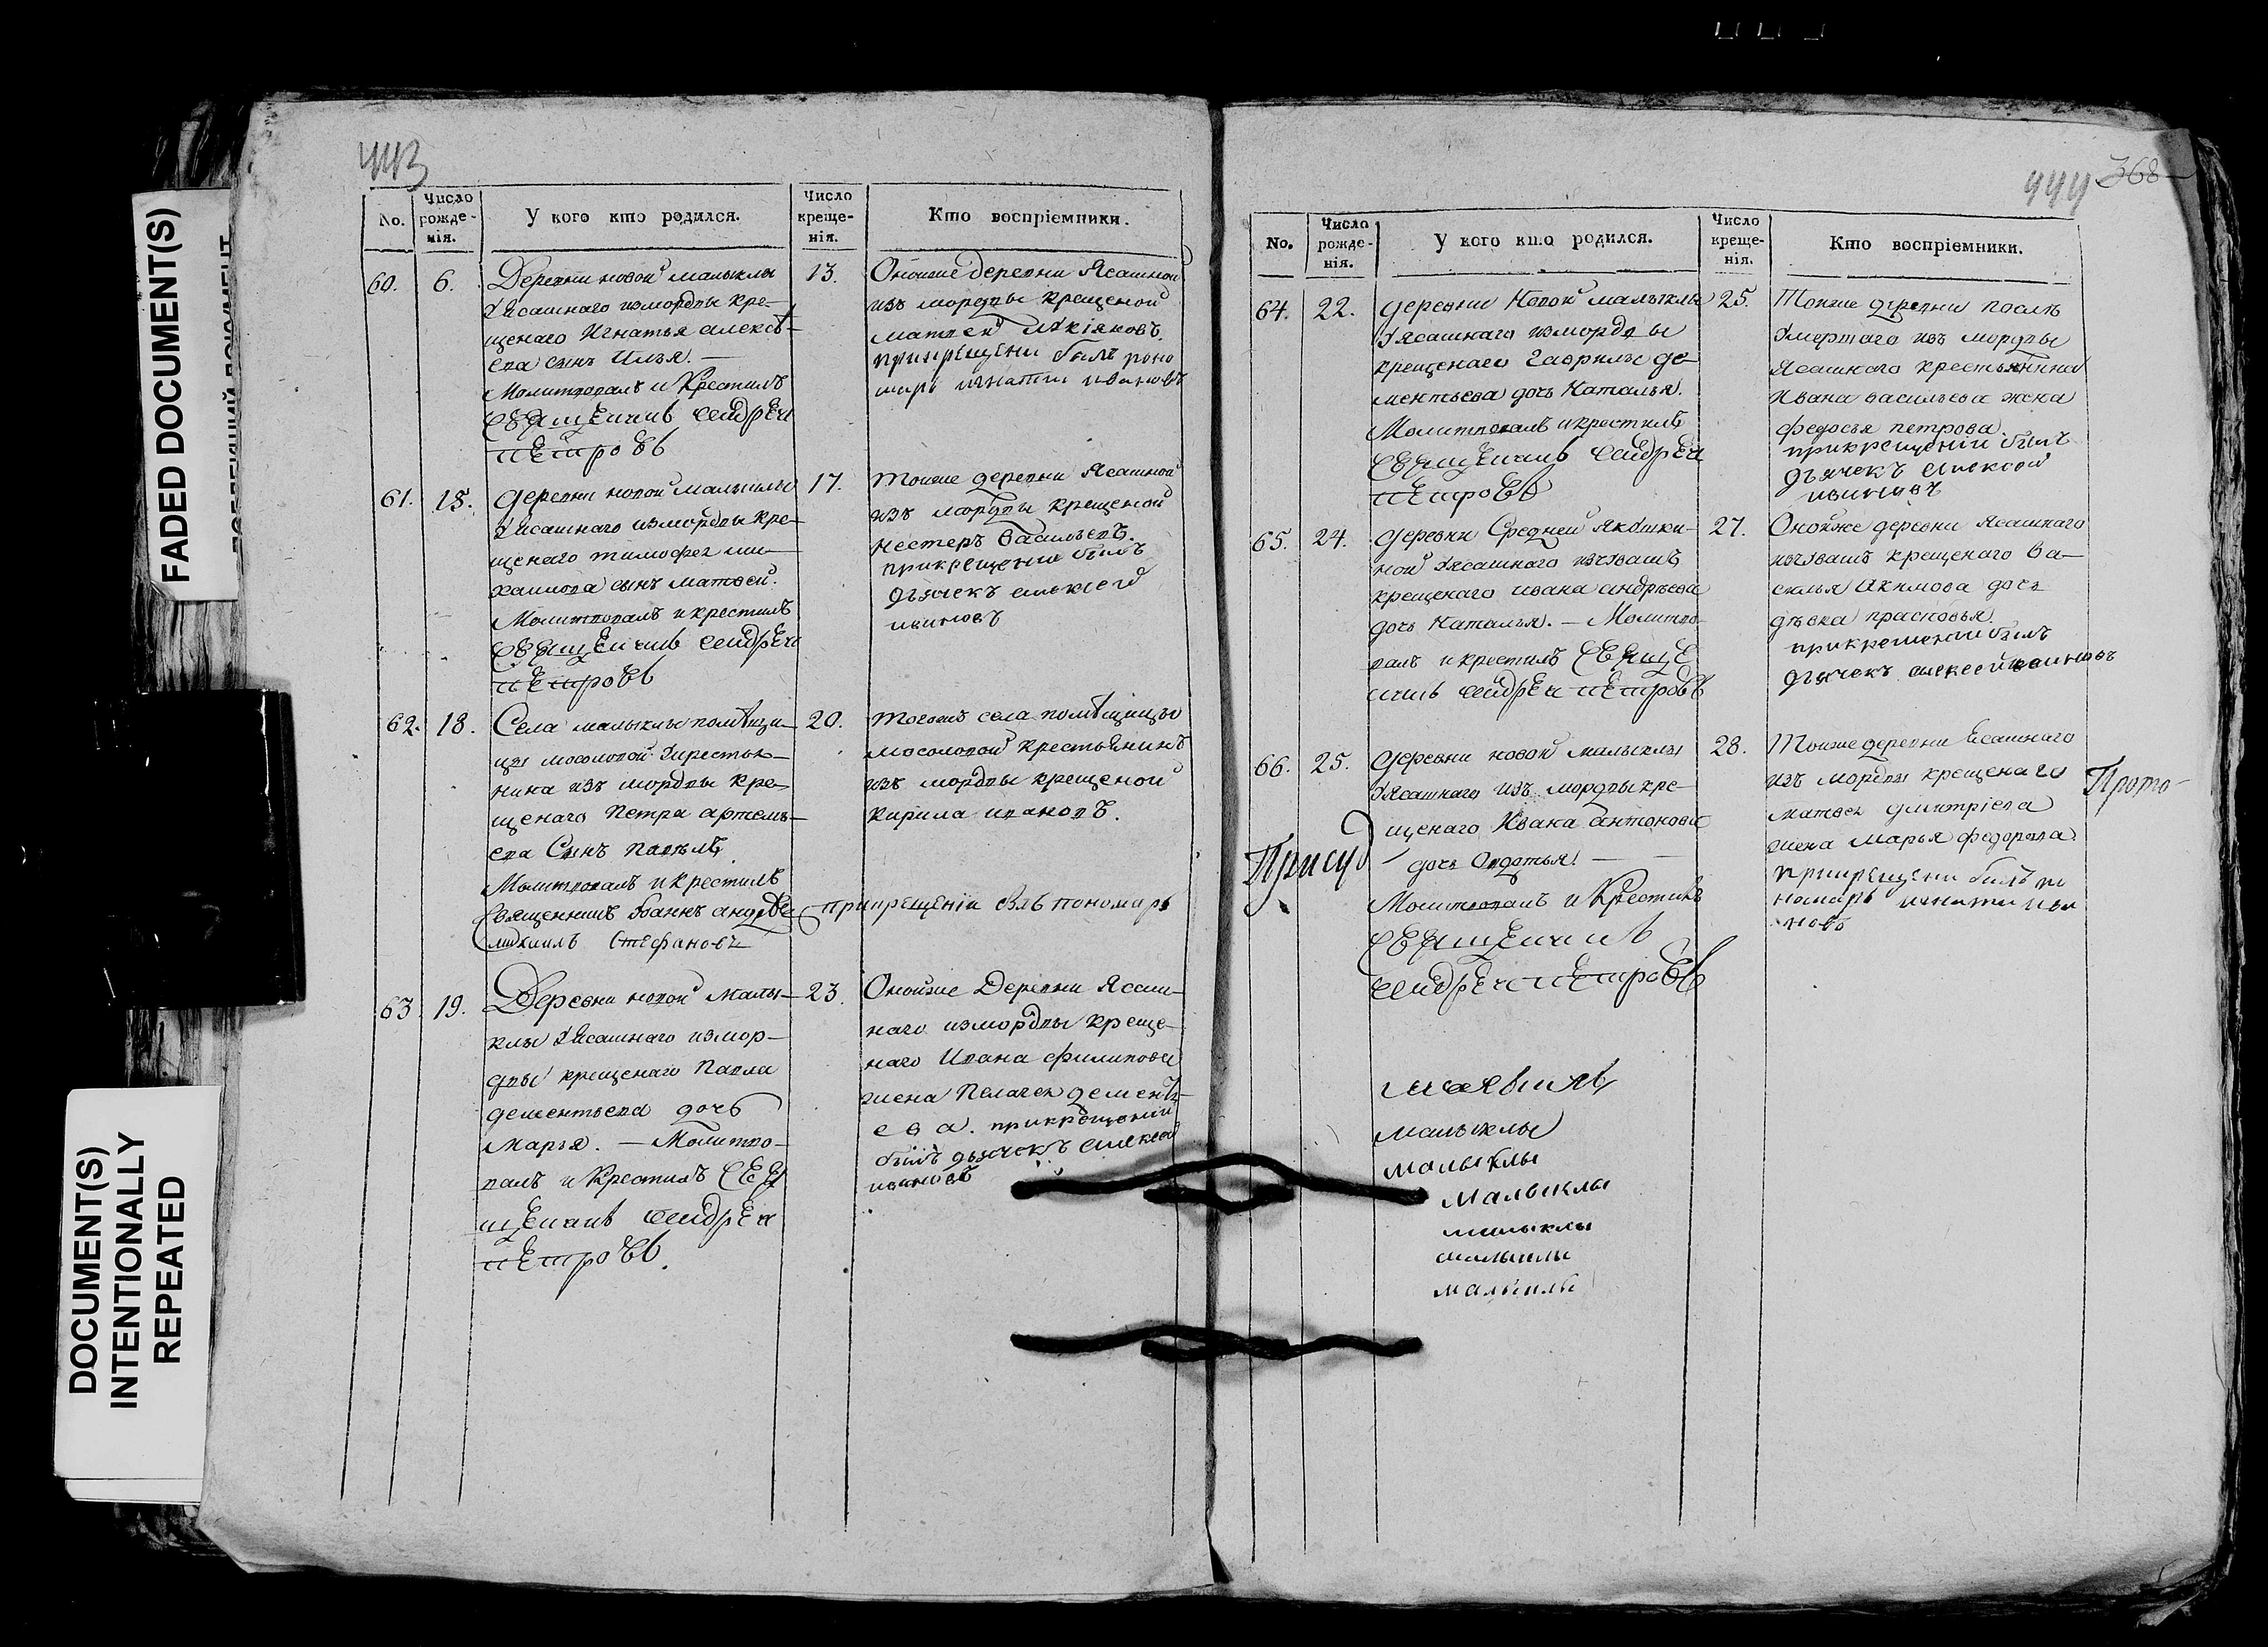 FADED DOCUMENT(S)
DOCUMENT(S)
INTENTIONALLY
REPEATED
443
No.
Число рожде-нія.
У кого кто родился.
Число креще-нія.
Кто воспріемники.
60. 6.
Деревни новой малыклы
Уясашнаго измордвы кре-
щенаго Игнатья алексѣ-
ева сынъ Илья. —
Молитвовалъ и Крестилъ
священникъ андрей
петровъ
13.
Оноиже деревни Ясашной
изъ мордвы крещеной
матвей
прикрещени былъ поно
марь игнатей ивановъ
61. 15.
деревни новой малыклы
Уясашнаго измордвы кре-
щенаго тимофея ми-
хаилова сынъ матвей.
Молитвовалъ и крестилъ
священникъ андрей
петровъ
17.
тоиже деревни Ясашной
изъ мордвы крещеной
нестеръ васильевъ.
прикрещение былъ
дьячекъ алексей
ивановъ
62. 18.
Села малыклы помѣщи-
цы мосоловой Укрестья-
нина изъ мордвы кре-
щенаго Петра артемь-
ева Сынъ павелъ
Молитвовалъ и крестилъ
Священникъ Іоаннъ андрѣе
Стефановъ
20.
тогожъ села помѣщицы
мосоловой крестьянинъ
изъ мордвы крещеной
кирила ивановъ.
прикрещеніи былъ пономарь
63 19.
Деревни новой малы-
клы Уясашнаго измор-
двы крещенаго Павла
дементьева дочь
Марья. — Молитво-
валъ и Крестилъ свя
щенникъ андрей
петровъ.
23.
Оноиже Деревни Ясаш-
наго измордвы креще-
наго Ивана филипова
жена Пелагея дементь-
ева. прикрещении
былъ дьячекъ алексей
ивановъ
444 368
No.
Число рожде-нія.
У кого кто родился.
Число креще-нія.
Кто воспріемники.
64. 22.
деревни Новой малыклы
Уясашнаго измордвы
крещенаго Гаврилы де-
ментьева дочь Наталья.
Молитвовалъ и крестилъ
священникъ андрей
петровъ
25.
Тоиже деревни послѣ
Умершаго изъ мордвы
Ясашнаго крестьянина
Ивана васильева жена
федосья петрова.
прикрещеніи былъ
дьячекъ алексей
ивановъ
65. 24.
деревни Средней Якушки-
ной Уясашнаго изчувашъ
крещенаго ивана андрѣева
дочь Наталья. — Молитво-
валъ и крестилъ свяще
нникъ андрей петровъ
27.
Онойже деревни Ясашнаго
изчувашъ крещенаго ва-
силья Акимова дочь
дѣвка прасковья.
прикрещении былъ
дьячекъ алексей ивановъ
66. 25.
деревни новой малыклы
Уясашнаго изъ мордвы кре-
щенаго Ивана антонова
дочь Овдотья. —
Молитвовалъ и Крестилъ
священникъ
андрей петровъ
28.
Тоиже деревни Ясашнаго
изъ мордвы крещенаго
матвея дмитріева
жена марья федорова.
прикрещени былъ по
номарь игнатеи ива
новъ
Прото-
Присуд
малыклы
малыклы
малыклы
малыклы
малыклы
малыклы